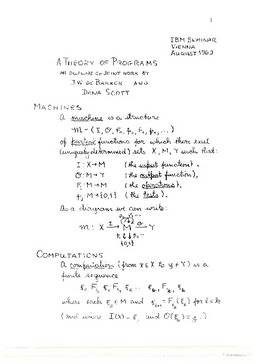 1
IBM SEMINAR
VIENNA
AUGUST 1969
A THEORY OF PROGRAMS
AN OUTLINE OF JOINT WORK BY
J.W. DE BAKKER AND
DANA SCOTT
MACHINES
A machine is a structure
of partial functions for which there exist
(uniquely determined) sets X, M, Y such that:
I: X→M (the input function).
O: M→Y (the output function),
Fᵢ: M→M (the operations),
pⱼ: M→{0,1} (the tests).
As a diagram we can write:
m: X I→ M O→ Y
{0,1}
COMPUTATIONS
A computation (from x∈X to y∈Y) is a
finite sequence
where each ξᵢ∈M and
(and where I(x)=ξ₀ and